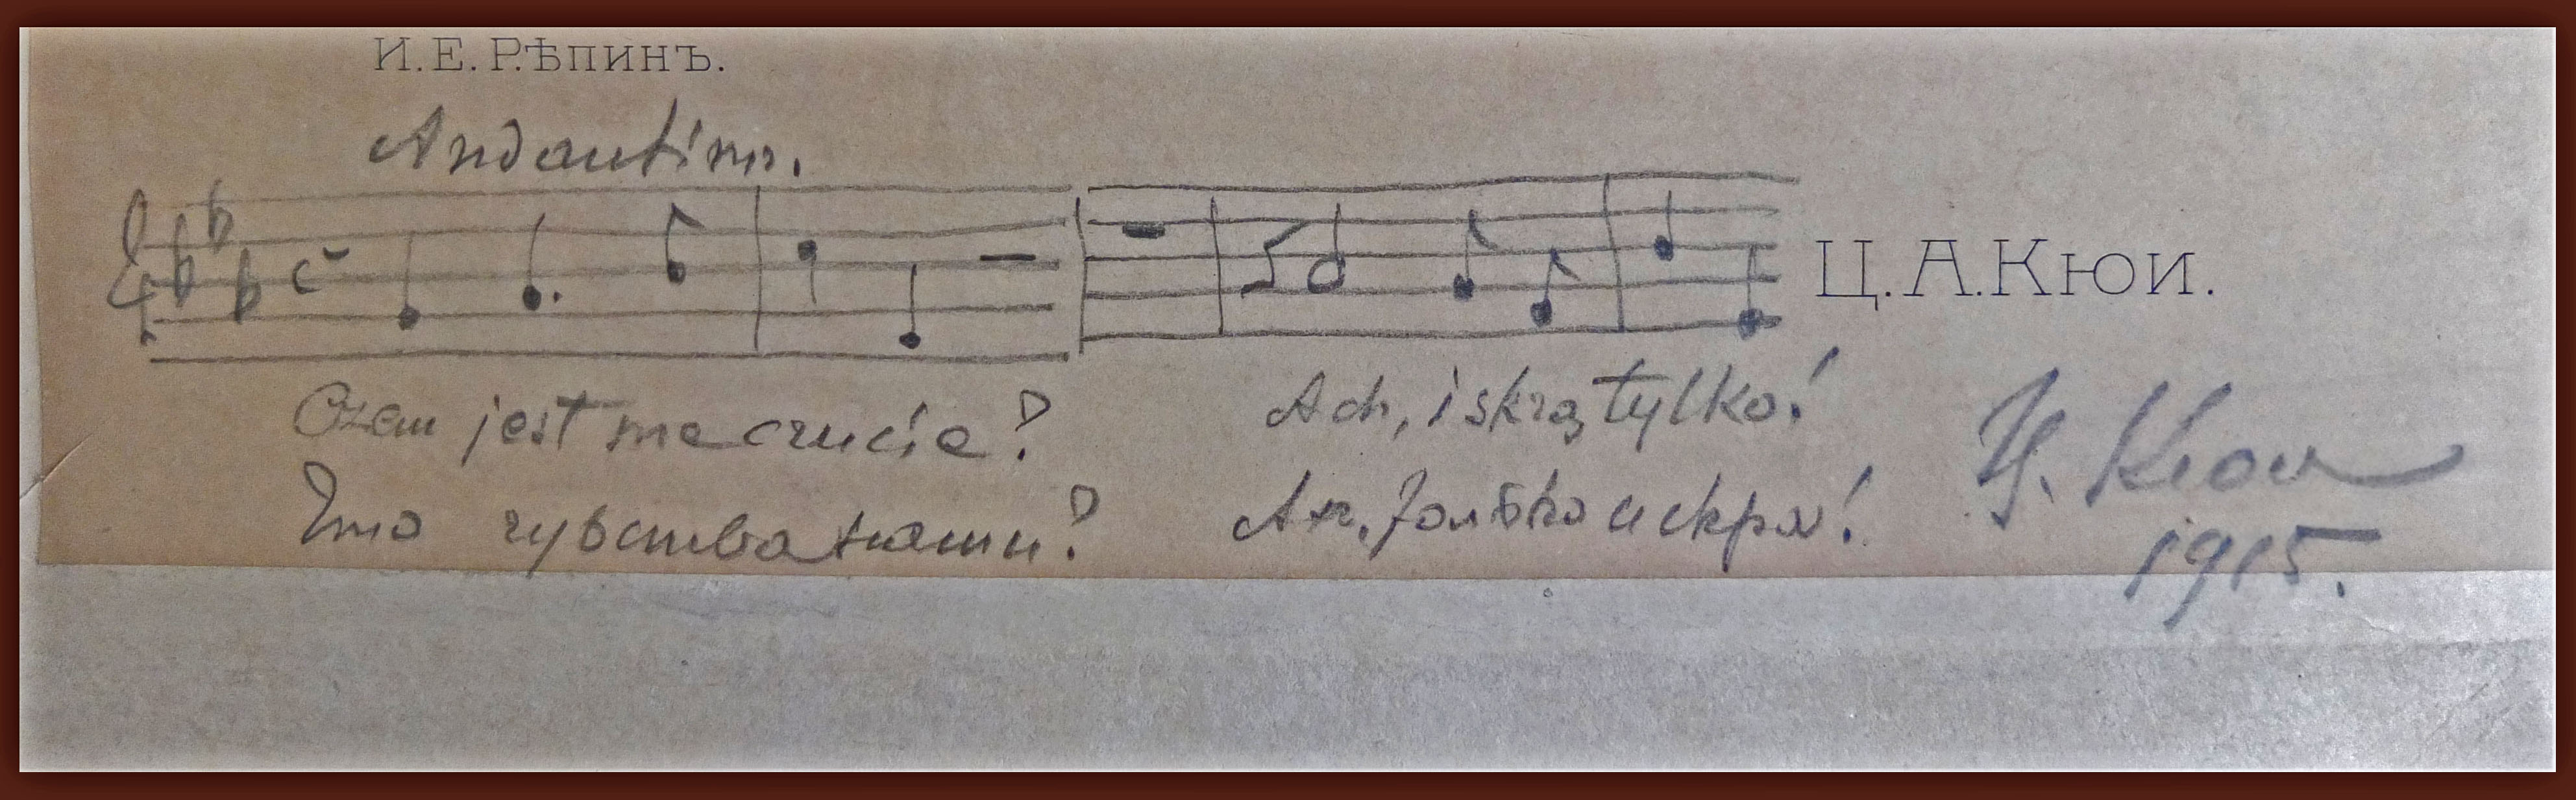 И. Е. РѢПИНЪ.
Andantino.
Czem jest me czucie?
Ach, iskrą tylko!
Ц. А. Кюи.
Что чувства наши?
Ах, только искра!
Ц. Кюи
1915.